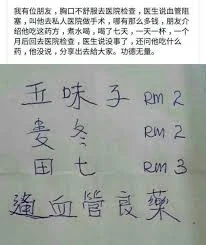 我有位朋友，胸口不舒服去医院检查，医生说血管阻
塞，叫他去私人医院做手术，哪有那么多钱，朋友介
绍他吃这药方，煮水喝，喝了七天，一天一杯，一个
月后回去医院检查，医生说没事了，还问他吃什么
药，他没说，分享出去給大家。功德无量。
五味子 RM 2
麦冬 RM 2
田七 RM 3
通血管良藥